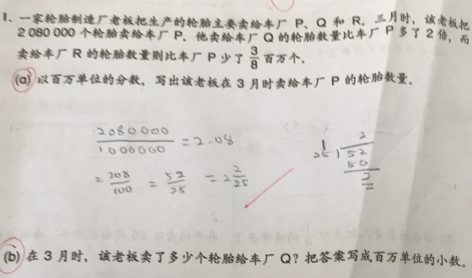 1. 一家轮胎制造厂老板把生产的轮胎主要卖给车厂 P、Q 和 R。三月时，该老板把
2 080 000 个轮胎卖给车厂 P。他卖给车厂 Q 的轮胎数量比车厂 P 多了 2 倍，而
卖给车厂 R 的轮胎数量则比车厂 P 少了 3/8 百万个。
(a) 以百万单位的分数，写出该老板在 3 月时卖给车厂 P 的轮胎数量。
2080000/1000000 = 2.08
= 208/100 = 52/25 = 2 2/25
2
25)52
50
2
(b) 在 3 月时，该老板卖了多少个轮胎给车厂 Q？把答案写成百万单位的小数。